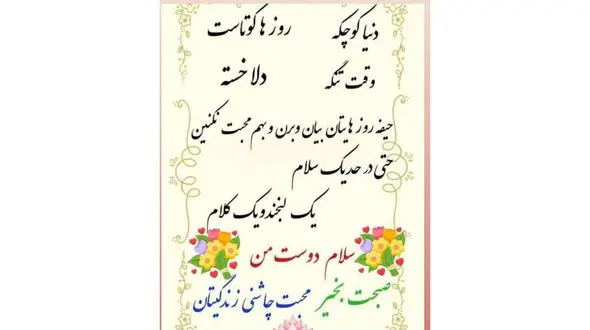 دنیا کوچکه روزها کوتاست
وقت تنگه دلا خسته
حیفه روزهایتان بیان و برن و بهم محبت نکنین
حتی در حد یک سلام
یک لبخند و یک کلام
سلام دوست من
صبحت بخیر محبت چاشنی زندگیتان